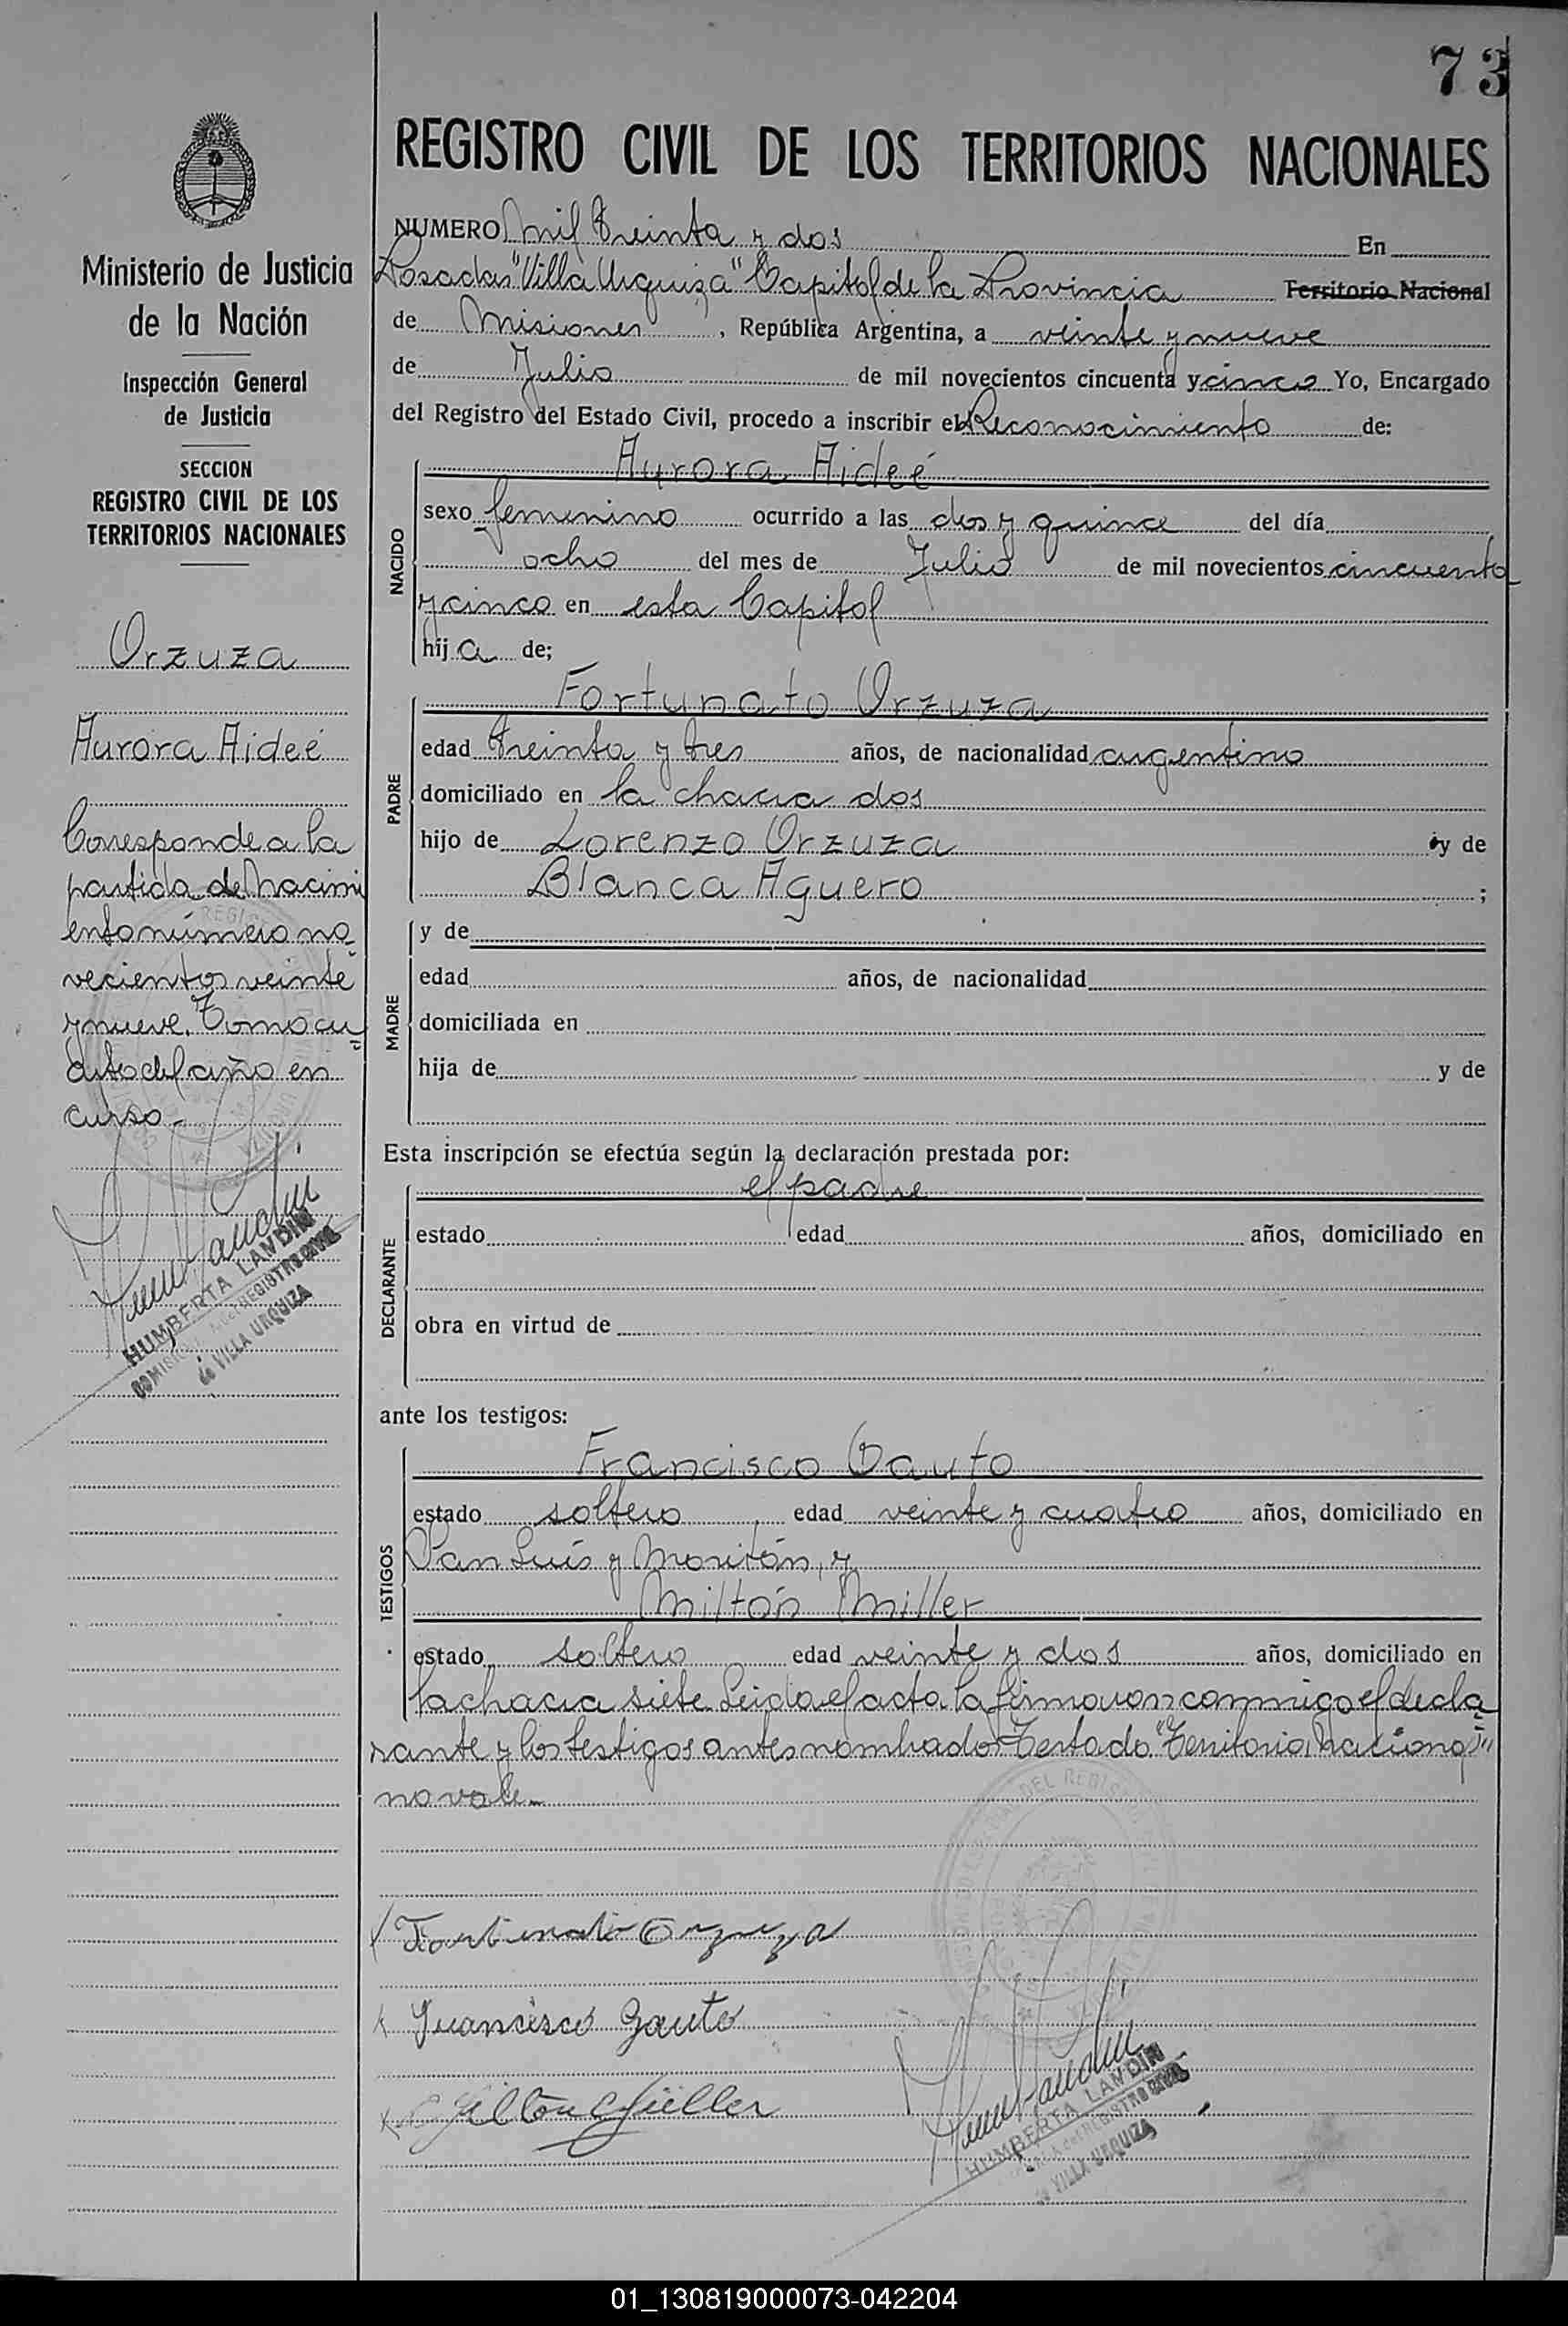 73
REGISTRO CIVIL DE LOS TERRITORIOS NACIONALES
NUMERO Mil treinta y dos En
Posadas "Villa Urquiza" Capital de la Provincia Territorio Nacional
de Misiones, República Argentina, a veinte y nueve
de Julio de mil novecientos cincuenta y cinco Yo, Encargado
del Registro del Estado Civil, procedo a inscribir el Reconocimiento de:
NACIDO
Aurora Aideé
sexo femenino ocurrido a las dos y quince del día
ocho del mes de Julio de mil novecientos cincuenta
y cinco en esta Capital
hija de;
PADRE
Fortunato Orzuza
edad treinta y tres años, de nacionalidad argentino
domiciliado en la chacra dos
hijo de Lorenzo Orzuza y de
Blanca Aguero ;
MADRE
y de
edad años, de nacionalidad
domiciliada en
hija de y de
Esta inscripción se efectúa según la declaración prestada por:
DECLARANTE
el padre
estado edad años, domiciliado en
obra en virtud de
ante los testigos:
TESTIGOS
Francisco Gauto
estado soltero edad veinte y cuatro años, domiciliado en
San Luis y Moritán, y
Miltón Miller
estado soltero edad veinte y dos años, domiciliado en
la chacra siete. Leida el acta la firmaron conmigo el decla
rante y los testigos antes nombrados Testado "Territorio Nacional"
no vale.-
Fortunato Orzuza
Francisco Gauto
Milton Müller
HUMBERTA LANDIN
de VILLA URQUIZA
Ministerio de Justicia
de la Nación
Inspección General
de Justicia
SECCION
REGISTRO CIVIL DE LOS
TERRITORIOS NACIONALES
Orzuza
Aurora Aideé
Corresponde a la
partida de Nacimi
ento número no
vecientos veinte
y nueve, Tomo cu
arto del año en
curso.-
HUMBERTA LANDIN
de VILLA URQUIZA
01_130819000073-042204